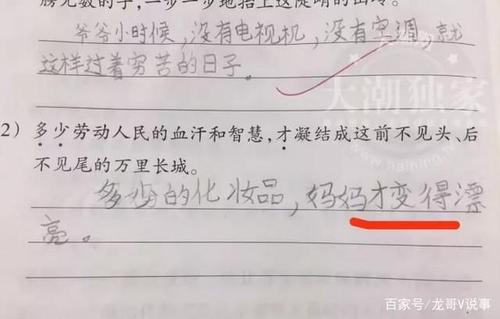 膀无数的手,一步一步地抬上这陡峭的山岭。
爷爷小时候,没有电视机,没有空调,就
这样过着穷苦的日子。
大潮独家
2) 多少劳动人民的血汗和智慧,才凝结成这前不见头、后
不见尾的万里长城。
多少的化妆品,妈妈才变得漂
亮。
百家号/龙哥V说事